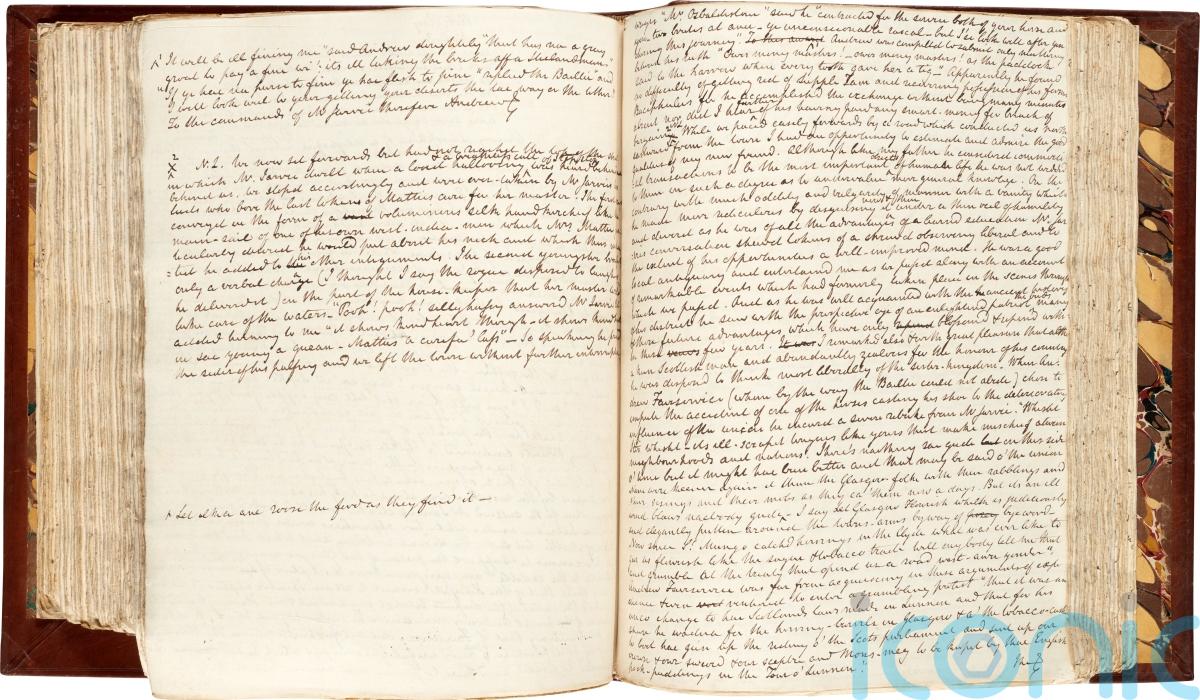 "It will be ill fining me" said Andrew doughtily "that has na a gray
groat to pay a fine wi': its ill taking the breeks aff a Hielandman -"
If ye hae nae purse to fine ye hae flesh to pine" replied the Baillie "and
I will look weel to your getting your deserts the tae way or the tither.
To the commands of Mr Jarvie therefore Andrew
N. 2. We now set forwards but had not reached the top of the
in which Mr. Jarvie dwelt when a loud hallooing was heard behind
behind us. We stoped accordingly and were over-taken by Mr Jarvies
lads who bore the last tokens of Matties care for her master. The first
conveyd in the form of a voluminous silk handkerchief like the
main-sail of one of his own west-india-men which Mrs Mattie
ticularly desired he would put about his neck and which thus
=ted he added to his other integuments. The second youngster
only a verbal charge (I thought I saw the rogue disposed to laugh
he deliverd it) on the part of the house-keeper that her master
take care of the waters - "Pooh! pooh! silly hussy answerd Mr Jarvie
added turning to me "it shows kind heart though - it shows kind
in sae young a quean - Mattie's a carefu' lass" - So speaking he
the sides of his palfrey and we left the town without further interruption
Let ilka ane roose the ford as they find it -
"Mr. Osbaldistone" said he "contracted for the service both of your horse and
two brutes at ance - ye unconscionable rascal - but I'se look weel after you
during this journey." To this Andrew was compelled to submit only muttering
"Ower mony masters! - ower mony masters! as the paddock
said to the harrow when every tooth gave her a tig - Apparently he found
no difficulty of getting rid of Supple Tam and recovering possession of his former
Bucephalus for he accomplished the exchange without being many minutes
absent nor did I hear further of his having paid any smart-money for breach of
bargain
While we passd easily forwards by a road which conducted us north
eastward from the town I had an opportunity to estimate and admire the good
qualities of my new friend. Although like my father he considerd commerce
transactions to be the most important objects of human life he was not wedded
to them in such a degree as to undervalue more general knowlege. On the
contrary with much oddity and vulgarity of manner with a vanity which
he made more rediculous by disguising it under a thin veil of humility
and devoid as he was of all the advantages of a learnd education Mr. Jar
vies conversation shewd tokens of a shrewd observing liberal and to
the extent of his opportunities a well-improved mind. He was a good
local antiquary and entertaind me as we passd along with an account
of remarkable events which had formerly taken place in the scenes through
which we passd. And as he was well acquainted with the ancient history
of his district he saw with the prospective eye of an enlightend patriot the buds many
of those future advantages which have only blossomd & ripend with
in these few years. I remarkd also & with great pleasure that altho
a keen Scottish-man and abundantly zealous for the honour of his country
he was disposd to think most liberally of the sister-kingdom. When An
drew Fairservice (whom by the way the Baillie could not abide) chose to
impute the accident of one of the horses casting his shoe to the deteriorating
influence of the union he incured a severe rebuke from Mr Jarvie. "Whisht
Sir whisht - its ill-scrapit tongues like yours that make mischief atween
neighbourhoods and nations. There's naething sae gude on this side
o' time but it might hae been better and that may be said o' the union
Nane were keener again it than the Glasgow folk with their rabblings and
their risings and their mobs as they ca' them now a days. But its an ill
wind blaws naebody gude - I say Let Glasgow flourish whilk is judiciously
and elegantly putten around the towns-arms by way of bye-word -
Now since St. Mungo catchd herrings in the Clyde what was ever like to
gar us flourish like the sugar & tobacco trade - will any body tell me that
and grumble at the treaty that opend us a road west-awa yonder"
Andrew Fairservice was far from acquiescing in these arguments of expe
dience & even ventured to enter a grumbling protest "that it was an
unco change to hae Scotlands laws made in Lunnon and that for his
share he wadna for the herring-barrels in Glasgow & a' the tobacco-casks
to boot hae gien up the riding o' the Scots parliament and sent up our
crown & our sword & our sceptre and Mons-meg to be keepit by that English
pock-puddings in the Tour o' Lunnon."
iconic